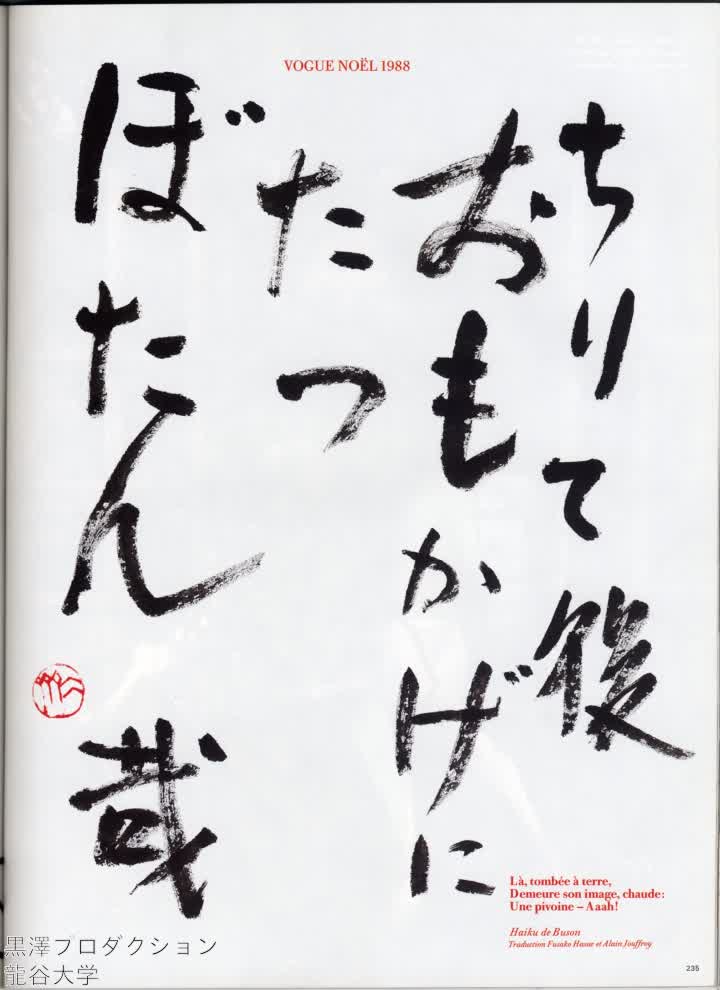 VOGUE NOËL 1988
ちりて後
おもかげに
たつ
ぼたん哉
Là, tombée à terre,
Demeure son image, chaude:
Une pivoine – Aaah!
Haiku de Buson
Traduction Fusako Hasae et Alain Jouffroy
235
黒澤プロダクション
龍谷大学